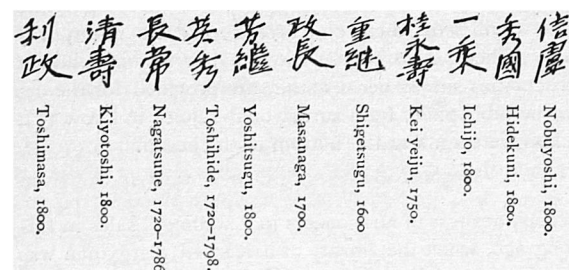 信
Nobuyoshi, 1800.
秀國
Hidekuni, 1800.
一乘
Ichijo, 1800.
桂永壽
Kei yeiju, 1750.
重継
Shigetsugu, 1600
政長
Masanaga, 1700.
芳繼
Yoshitsugu, 1800.
英秀
Toshihide, 1720–1798.
長常
Nagatsune, 1720–1786
清壽
Kiyotoshi, 1800.
利政
Toshimasa, 1800.